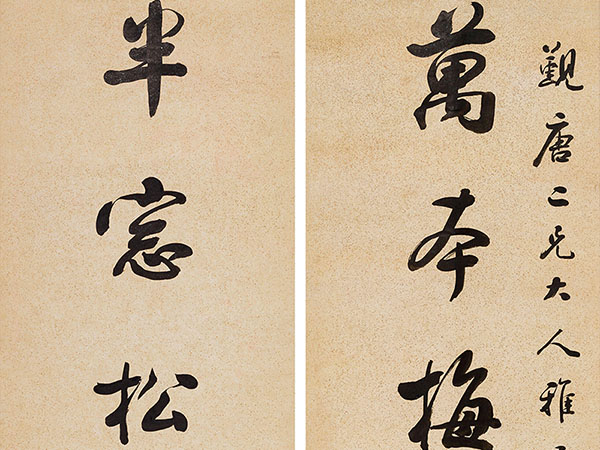 觀唐二兄大人雅
萬本梅
半窓松